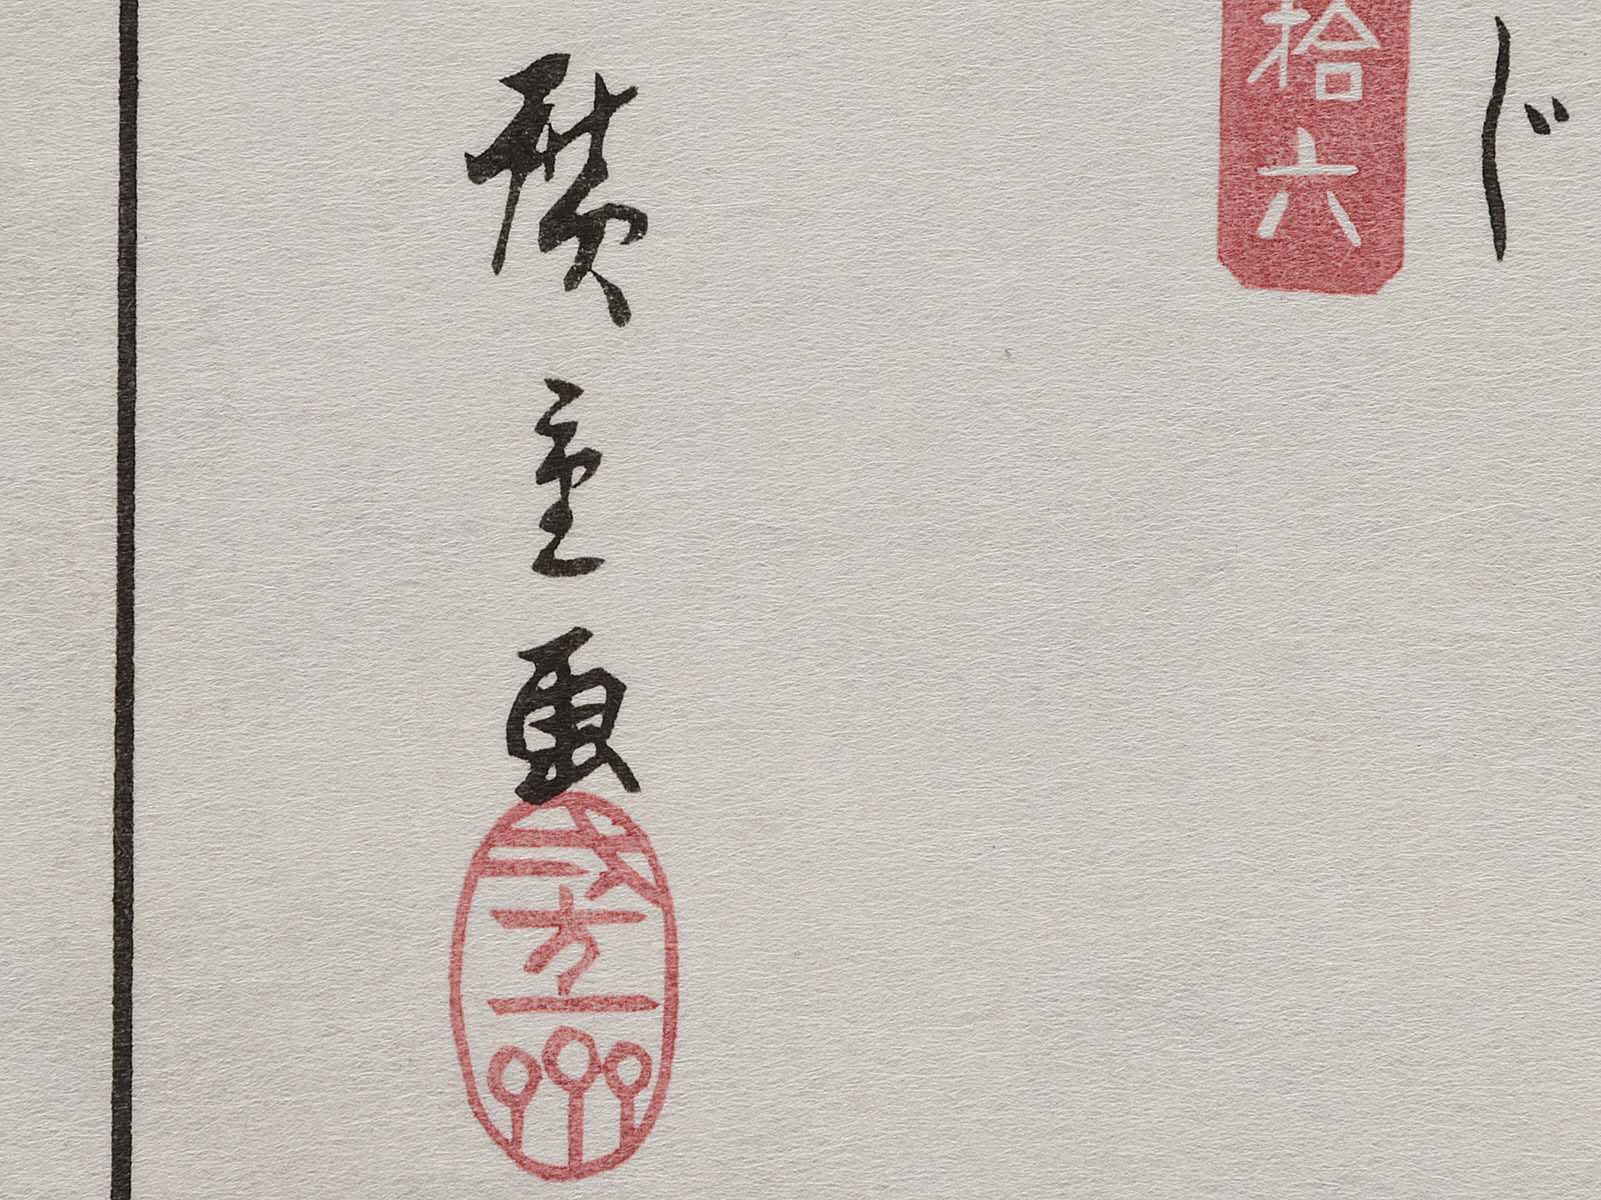 じ
拾六
廣重画